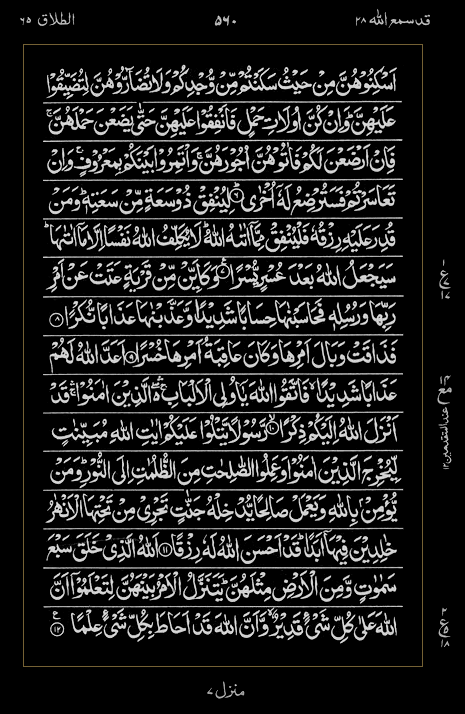 قدسمع الله ٢٨
٥٦٠
الطلاق ٦٥
اَسْكِنُوْهُنَّ مِنْ حَيْثُ سَكَنْتُمْ مِّنْ وُّجْدِكُمْ وَلَا تُضَآرُّوْهُنَّ لِتُضَيِّقُوْا
عَلَيْهِنَّ ؕ وَاِنْ كُنَّ اُولَاتِ حَمْلٍ فَاَنْفِقُوْا عَلَيْهِنَّ حَتّٰى يَضَعْنَ حَمْلَهُنَّ ۚ
فَاِنْ اَرْضَعْنَ لَكُمْ فَاٰتُوْهُنَّ اُجُوْرَهُنَّ ۚ وَاْتَمِرُوْا بَيْنَكُمْ بِمَعْرُوْفٍ ۚ وَاِنْ
تَعَاسَرْتُمْ فَسَتُرْضِعُ لَهٗۤ اُخْرٰى ؕ‏﴿۶﴾ لِيُنْفِقْ ذُوْ سَعَةٍ مِّنْ سَعَتِهٖ ؕ وَمَنْ
قُدِرَ عَلَيْهِ رِزْقُهٗ فَلْيُنْفِقْ مِمَّاۤ اٰتٰٮهُ اللّٰهُ ؕ لَا يُكَلِّفُ اللّٰهُ نَفْسًا اِلَّا مَاۤ اٰتٰٮهَا ؕ
سَيَجْعَلُ اللّٰهُ بَعْدَ عُسْرٍ يُّسْرًا ﴿۷﴾ وَكَاَيِّنْ مِّنْ قَرْيَةٍ عَتَتْ عَنْ اَمْرِ
رَبِّهَا وَرُسُلِهٖ فَحَاسَبْنٰهَا حِسَابًا شَدِيْدًا ۙ وَّعَذَّبْنٰهَا عَذَابًا نُّكْرًا ﴿۸﴾
فَذَاقَتْ وَبَالَ اَمْرِهَا وَكَانَ عَاقِبَةُ اَمْرِهَا خُسْرًا ﴿۹﴾ اَعَدَّ اللّٰهُ لَهُمْ
عَذَابًا شَدِيْدًا ۙ فَاتَّقُوا اللّٰهَ يٰۤاُولِى الْاَلْبَابِ ۛۖۚ الَّذِيْنَ اٰمَنُوْا ۛؕ قَدْ
اَنْزَلَ اللّٰهُ اِلَيْكُمْ ذِكْرًا ۙ‏﴿۱۰﴾ رَّسُوْلًا يَّتْلُوْا عَلَيْكُمْ اٰيٰتِ اللّٰهِ مُبَيِّنٰتٍ
لِّيُخْرِجَ الَّذِيْنَ اٰمَنُوْا وَعَمِلُوا الصّٰلِحٰتِ مِنَ الظُّلُمٰتِ اِلَى النُّوْرِ ؕ وَمَنْ
يُّؤْمِنْۢ بِاللّٰهِ وَيَعْمَلْ صَالِحًا يُّدْخِلْهُ جَنّٰتٍ تَجْرِىْ مِنْ تَحْتِهَا الْاَنْهٰرُ
خٰلِدِيْنَ فِيْهَاۤ اَبَدًا ؕ قَدْ اَحْسَنَ اللّٰهُ لَهٗ رِزْقًا ﴿۱۱﴾ اَللّٰهُ الَّذِىْ خَلَقَ سَبْعَ
سَمٰوٰتٍ وَّمِنَ الْاَرْضِ مِثْلَهُنَّ ؕ يَتَنَزَّلُ الْاَمْرُ بَيْنَهُنَّ لِتَعْلَمُوْۤا اَنَّ
اللّٰهَ عَلٰى كُلِّ شَىْءٍ قَدِيْرٌ ۙ وَّاَنَّ اللّٰهَ قَدْ اَحَاطَ بِكُلِّ شَىْءٍ عِلْمًا ﴿۱۲﴾
منزل ٧